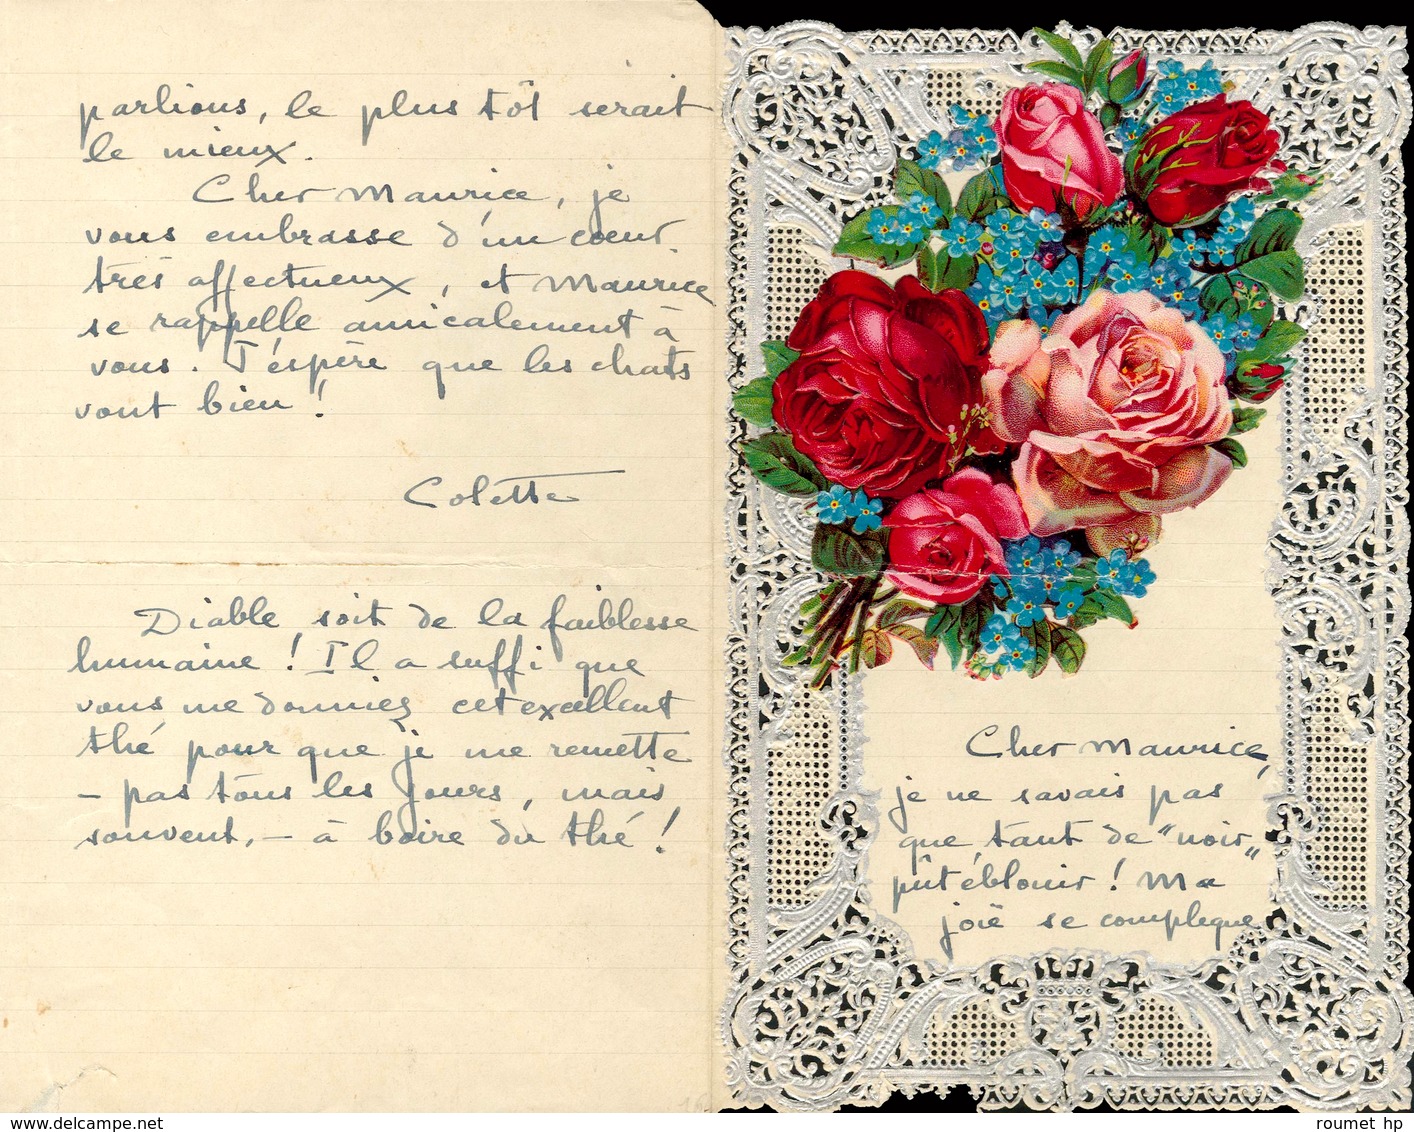 parlions, le plus tôt serait
le mieux.
Cher Maurice, je
vous embrasse d'un cœur
très affectueux, et Maurice
se rappelle amicalement à
vous. J'espère que les chats
vont bien!
Colette
Diable soit de la faiblesse
humaine! Il a suffi que
vous me donniez cet excellent
thé pour que je me remette
- pas tous les jours, mais
souvent, - à boire du thé!
Cher Maurice,
je ne savais pas
que tant de "noir"
pût éblouir! Ma
joie se complique
roumet hp